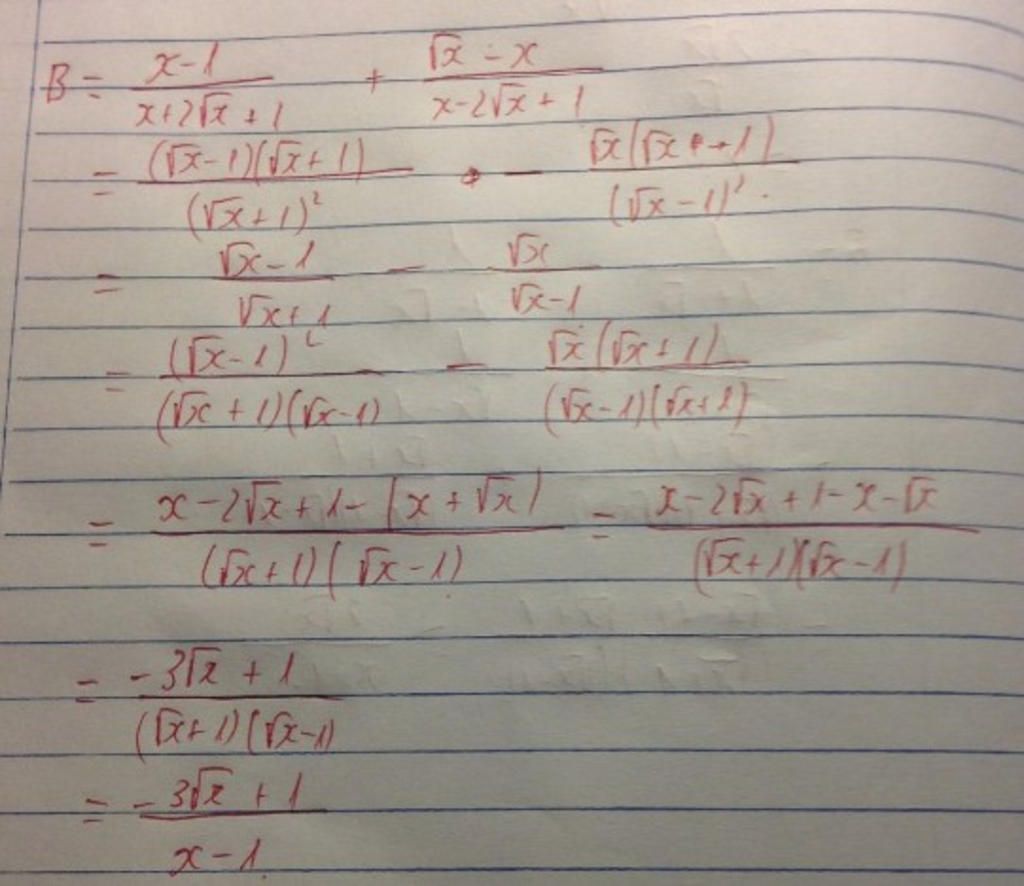 B = (x-1)/(x+2√x+1) + (√x-x)/(x-2√x+1)
= ((√x-1)(√x+1))/((√x+1)²) - (√x(√x-1))/((√x-1)²)
= (√x-1)/(√x+1) - √x/(√x-1)
= ((√x-1)²)/((√x+1)(√x-1)) - (√x(√x+1))/((√x-1)(√x+1))
= (x-2√x+1-(x+√x))/((√x+1)(√x-1)) = (x-2√x+1-x-√x)/((√x+1)(√x-1))
= (-3√x+1)/((√x+1)(√x-1))
= (-3√x+1)/(x-1)